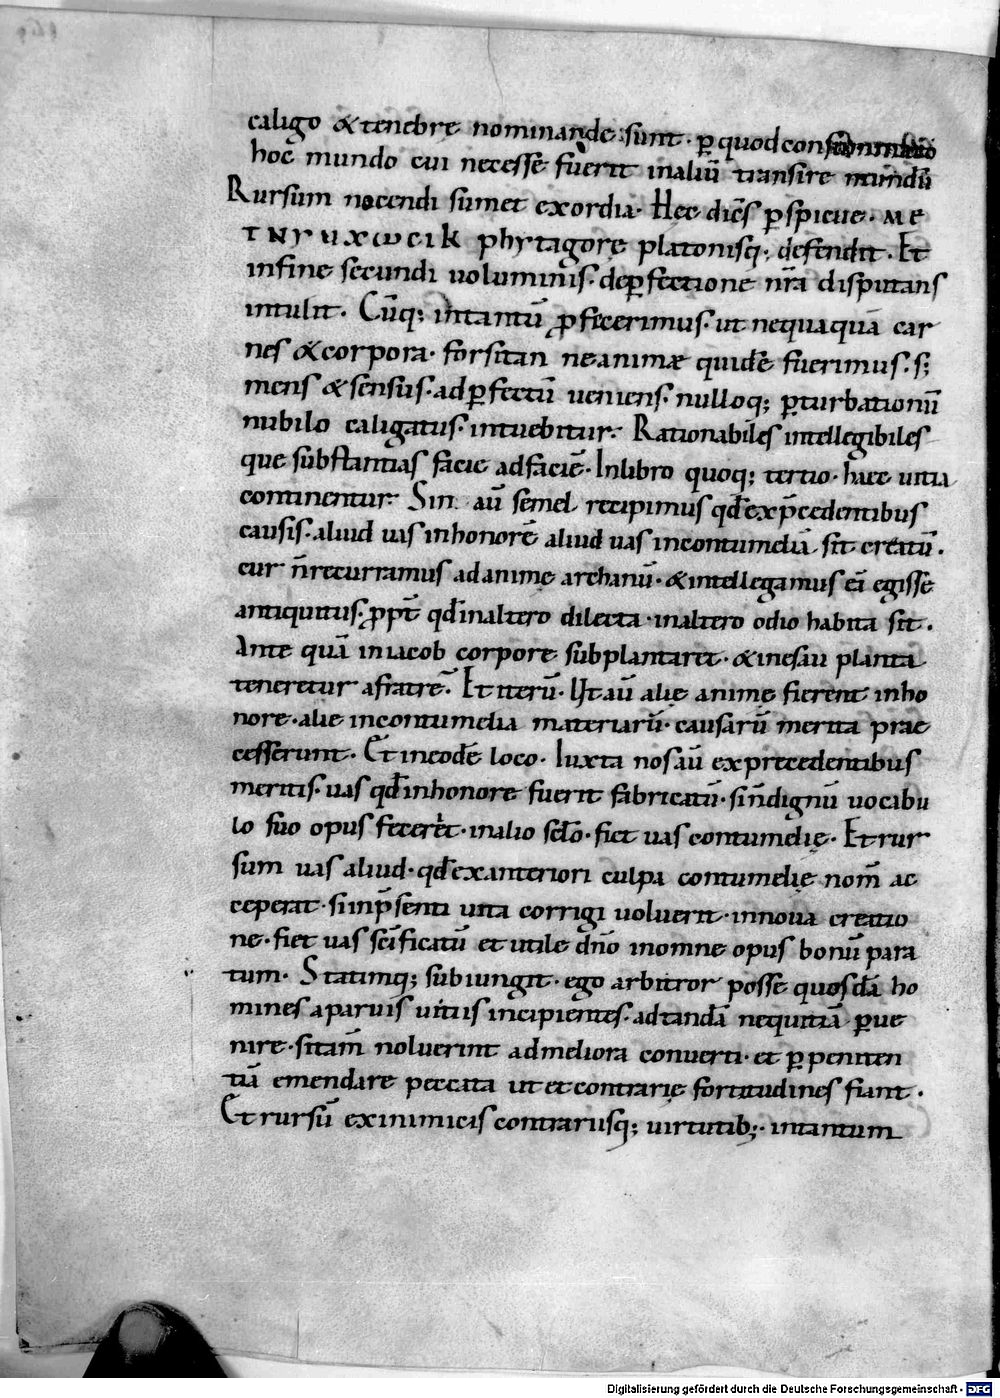 caligo & tenebrę nominandę sunt· p̱ quod consummato
hoc mundo cui necesse fuerit in aliū transire mundū
Rursum nocendi sumet exordia· Hec diceS p̱spicue· ΜΕ
ΤΝΥΥΧωCΙΚ phytagorę platonisq; defendit· Et
in fine secundi uoluminis· de p̱fectione nr̄a disputans
intulit· Cūq; intantū ꝓfecerimus· ut nequaquā car
nes & corpora· forsitan ne animæ quidē fuerimus· s;
mens & sensus· ad p̱fectū ueniens· nulloq; p̱turbationū
nubilo caligatus· intuebitur· Rationabiles intellegibiles
que substantias facie ad faciē· In libro quoq; tertio· haec uitia
continentur· Sin aū semel recipimus qđ ex p̄cedentibus
causis· aliud uas in honorē aliud uas in contumeliā sit creatū·
cur n̄ recurramus ad animę archanū· & intellegamus eā egisse
antiquitus· ꝓpt̄ qđ in altero dilecta· in altero odio habita sit·
Ante quā in iacob corpore subplantaret· & in esau planta
teneretur a fratre· Et iterū· Ut aū alię animę fierent in ho
nore· alię in contumelia materiarū· causarū merita prae
cesserunt· Et in eodē loco· Iuxta nos aū ex precedentibus
meritis· uas qđ in honore fuerit fabricatū· si n̄ dignū uocabu
lo suo opus fecerēt· in alio sc̄lo· fiet uas contumelię· Et rur
sum uas aliud· qđ ex anteriori culpa contumelię nom̄ ac
ceperat· si in p̄senti uita corrigi uoluerit· in noua creatio
ne· fiet uas sc̄ificatū et utile dn̄o in omne opus bonū para
tum· Statimq; subiungit· ego arbitror posse quosdā ho
mines a paruis uitiis incipientes· ad tandā nequitiā p̱ue
nire· si tam̄ noluerint ad meliora conuerti· et p̱ peniten
tiā emendare peccata ut et contrarię fortitudines fiant·
Et rursū ex inimicis contrariisq; uirtutib;· intantum
Digitalisierung gefördert durch die Deutsche Forschungsgemeinschaft - DFG